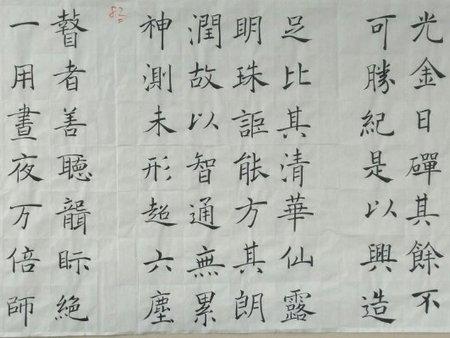 光金日磾其餘不
可勝紀是以興造
足比其清華仙露
明珠詎能方其朗
潤故以智通無累
神測未形超六塵
8.2
瞽者善聽聾眎絶
一用晝夜万倍師